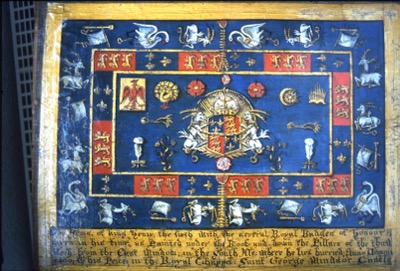 Arms, of King Henry, the sixth with the several Royal Badges of Honour
born in his time, as Painted under the Roof and down the Pillar of the third
Arch from the East Window, in the South Isle where he lies buried Anno Domini
to his Peice in the Royal Chappel Saint George Windsor Castle